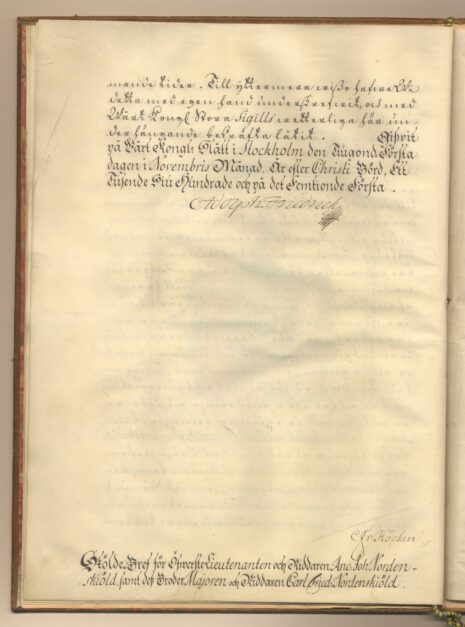 mande tider. Till yttermera wisso hafwe Wi
detta med egen hand underskrefwit, och med
Wårt Kongl. Stora Sigills wetterliga här un-
der hängande bekräfta låtit. Gifwit
på Wårt Kongl: Slått i Stockholm den Tiugond Första
dagen i Novembris Månad, År efter Christi Börd, Ett
Tusende Siu Hundrade och på det Femtionde Första.
Adolph Friedrich
Skölde Bref för Öfwerste Lieutenanten och Riddaren Joh. Norden-
skiöld, samt des Broder Majoren och Riddaren Carl Nordenskiöld.